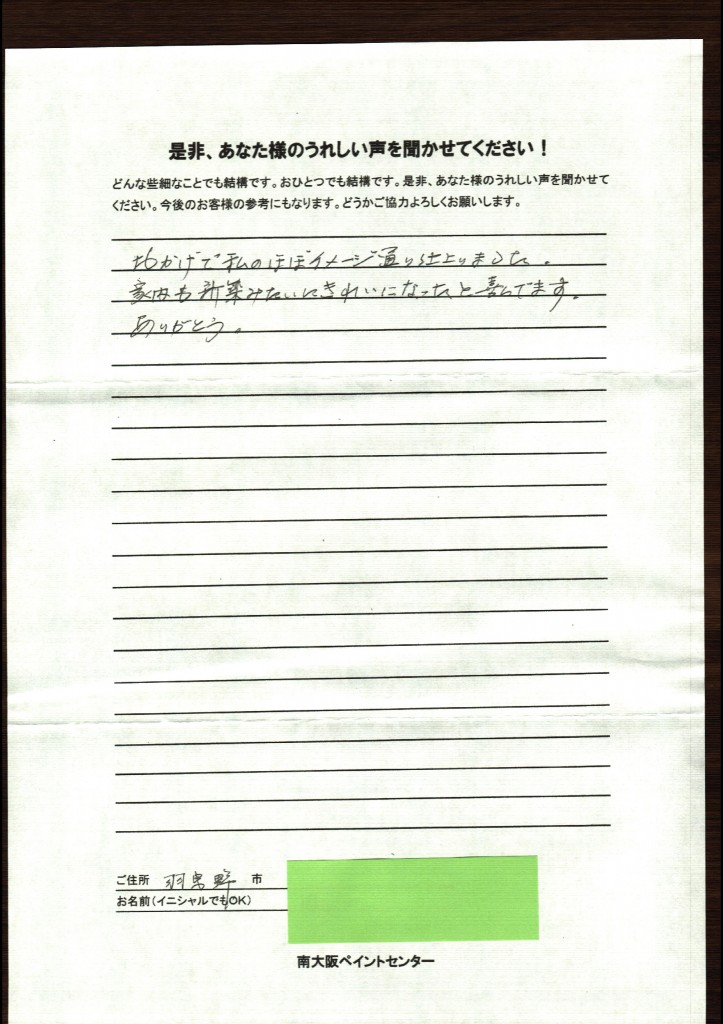 是非、あなた様のうれしい声を聞かせてください！
どんな些細なことでも結構です。おひとつでも結構です。是非、あなた様のうれしい声を聞かせて
ください。今後のお客様の参考にもなります。どうかご協力よろしくお願いします。
おかげで私のほぼイメージ通り仕上りました。
家内も新築みたいにきれいになったと喜んでます。
ありがとう。
ご住所 羽曳野 市
お名前（イニシャルでもOK）
南大阪ペイントセンター